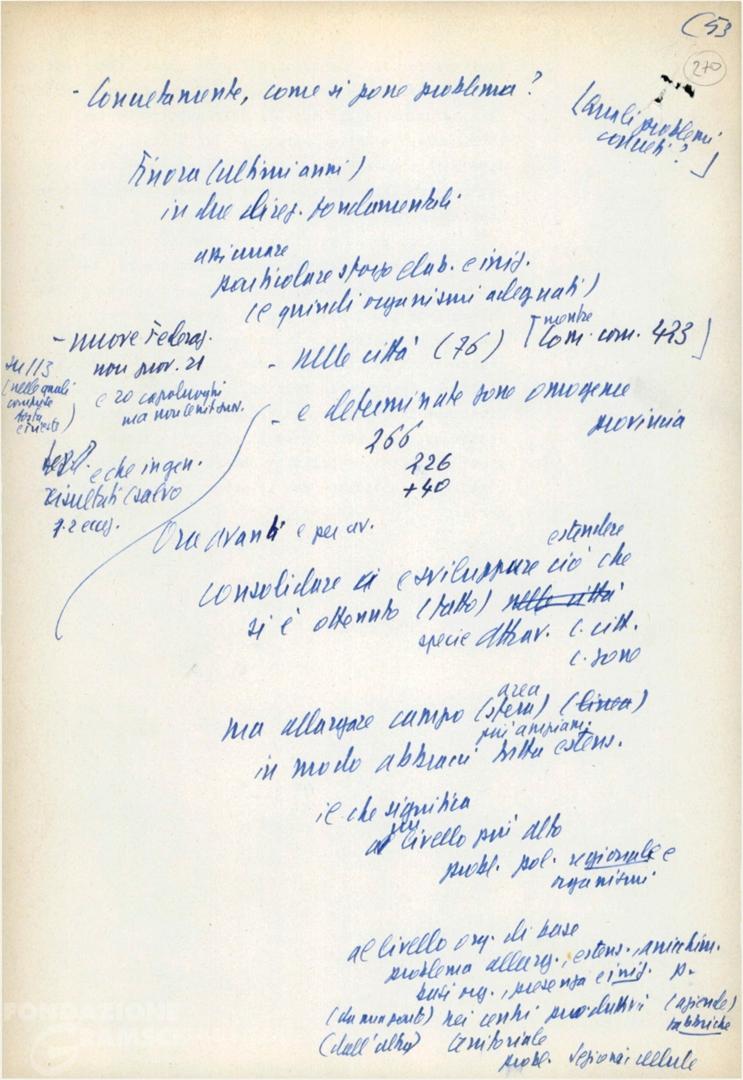 (53
270
- Concretamente, come si pone problema?
[Quali problemi
concreti?]
Finora (ultimi anni)
in due direz. fondamentali
assicurare
particolare sforzo elab. e iniz.
(e quindi organismi adeguati)
- nelle città (76) [mentre
Com. com. 423]
- e determinate zone omogenee
provincia
266
226
+40
- nuove Federaz.
non prov. 21
e 20 capoluoghi
su 113
(nelle quali
e che in gen.
risultati (salvo
Ora avanti e per av.
estendere
consolidare e sviluppare ciò che
si è ottenuto (fatto) nelle città
specie attrav. C. citt.
C. zone
area
ma allargare campo (sfera) (linea)
più ampiam.
in modo abbracci tutta estens.
il che significa
più
al livello più alto
probl. pol. regionale e
organismi
al livello org. di base
problema allarg., estens., arricchim.
basi org., presenza e iniz. p.
(da una parte) nei centri produttivi (aziende)
fabbriche
(dall'altra) territoriale
probl. sezioni cellule
FONDAZIONE
GRAMSCI